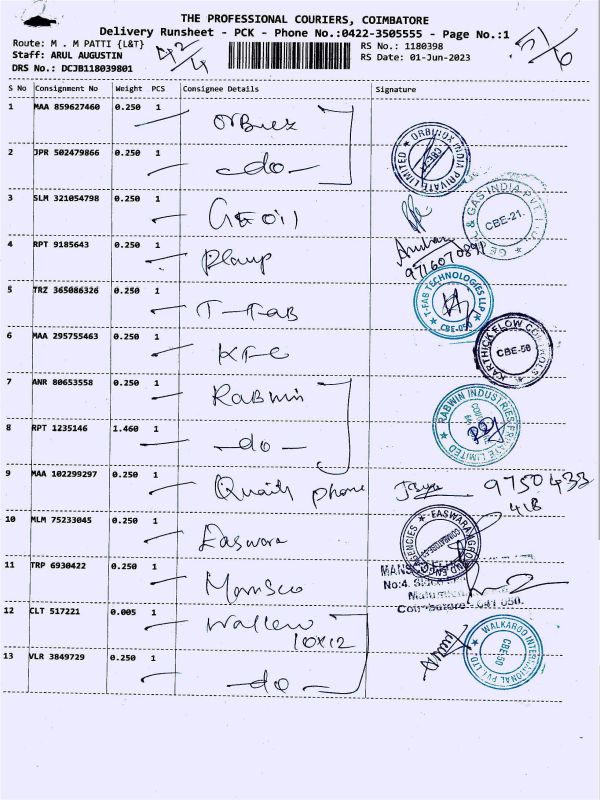 THE PROFESSIONAL COURIERS, COIMBATORE
Delivery Runsheet - PCK - Phone No.:0422-3505555 - Page No.:1
Route: M . M PATTI {L&T}
RS No.: 1180398
Staff: ARUL AUGUSTIN
RS Date: 01-Jun-2023
DRS No.: DCJB118039801
S No Consignment No Weight PCS Consignee Details Signature
1 MAA 859627460 0.250 1
2 JPR 502479866 0.250 1 -do-
ORBINOX INDIA PRIVATE LIMITED
3 SLM 321054798 0.250 1 GEOil
& GAS INDIA PVT LTD CBE-21
4 RPT 9185643 0.250 1
9716070891
5 TRZ 365086326 0.250 1 T-FAB
T-FAB TECHNOLOGIES LLP CBE-050
6 MAA 295755463 0.250 1 KFC
KARTHICK FLOW CONTROLS CBE-50
7 ANR 80653558 0.250 1 RABwin
8 RPT 1235146 1.460 1 -do-
RABWIN INDUSTRIES PRIVATE LIMITED
9 MAA 102299297 0.250 1 phone 9750433
418
10 MLM 75233045 0.250 1 Easwara
11 TRP 6930422 0.250 1 Mansco
No:4.
12 CLT 517221 0.005 1
10x12
13 VLR 3849729 0.250 1 -do-
WALKAROO INTERNATIONAL PVT. LTD CBE-50